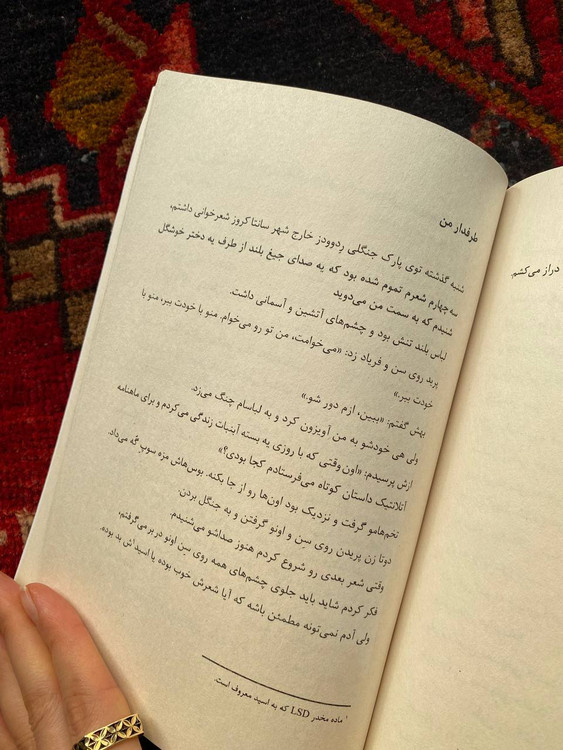 طرفدار من
شنبه گذشته توی پارک جنگلی رِدوودز خارج شهر سانتا کروز شعرخوانی داشتم،
سه چهارم شعرم تموم شده بود که یه صدای جیغ بلند از طرف یه دختر خوشگل
شنیدم که به سمت من می‌دوید
لباس بلند تنش بود و چشم‌های آتشین و آسمانی داشت.
پرید روی سن و فریاد زد: «می‌خوامت، من تو رو می‌خوام. منو با خودت ببر، منو با
خودت ببر.»
بهش گفتم: «ببین، ازم دور شو.»
ولی هی خودشو به من آویزون کرد و به لباسام چنگ می‌زد.
ازش پرسیدم: «اون وقتی که با روزی یه بسته آبنبات زندگی می‌کردم و برای ماهنامه
آتلانتیک داستان کوتاه می‌فرستادم کجا بودی؟»
تخم‌هامو گرفت و نزدیک بود اون‌ها رو از جا بکنه. بوس‌هاش مزه سوپِ گُه می‌داد.
دوتا زن پریدن روی سِن و اونو گرفتن و به جنگل بردن.
وقتی شعر بعدی رو شروع کردم هنوز صداشو می‌شنیدم.
فکر کردم شاید باید جلوی چشم‌های همه روی سِن اونو در بر می‌گرفتم،
ولی آدم نمی‌تونه مطمئن باشه که آیا شعرش خوب بوده یا اسید¹ش بد بوده.
¹ ماده مخدر LSD که به اسید معروف است.
دراز می‌کشم.